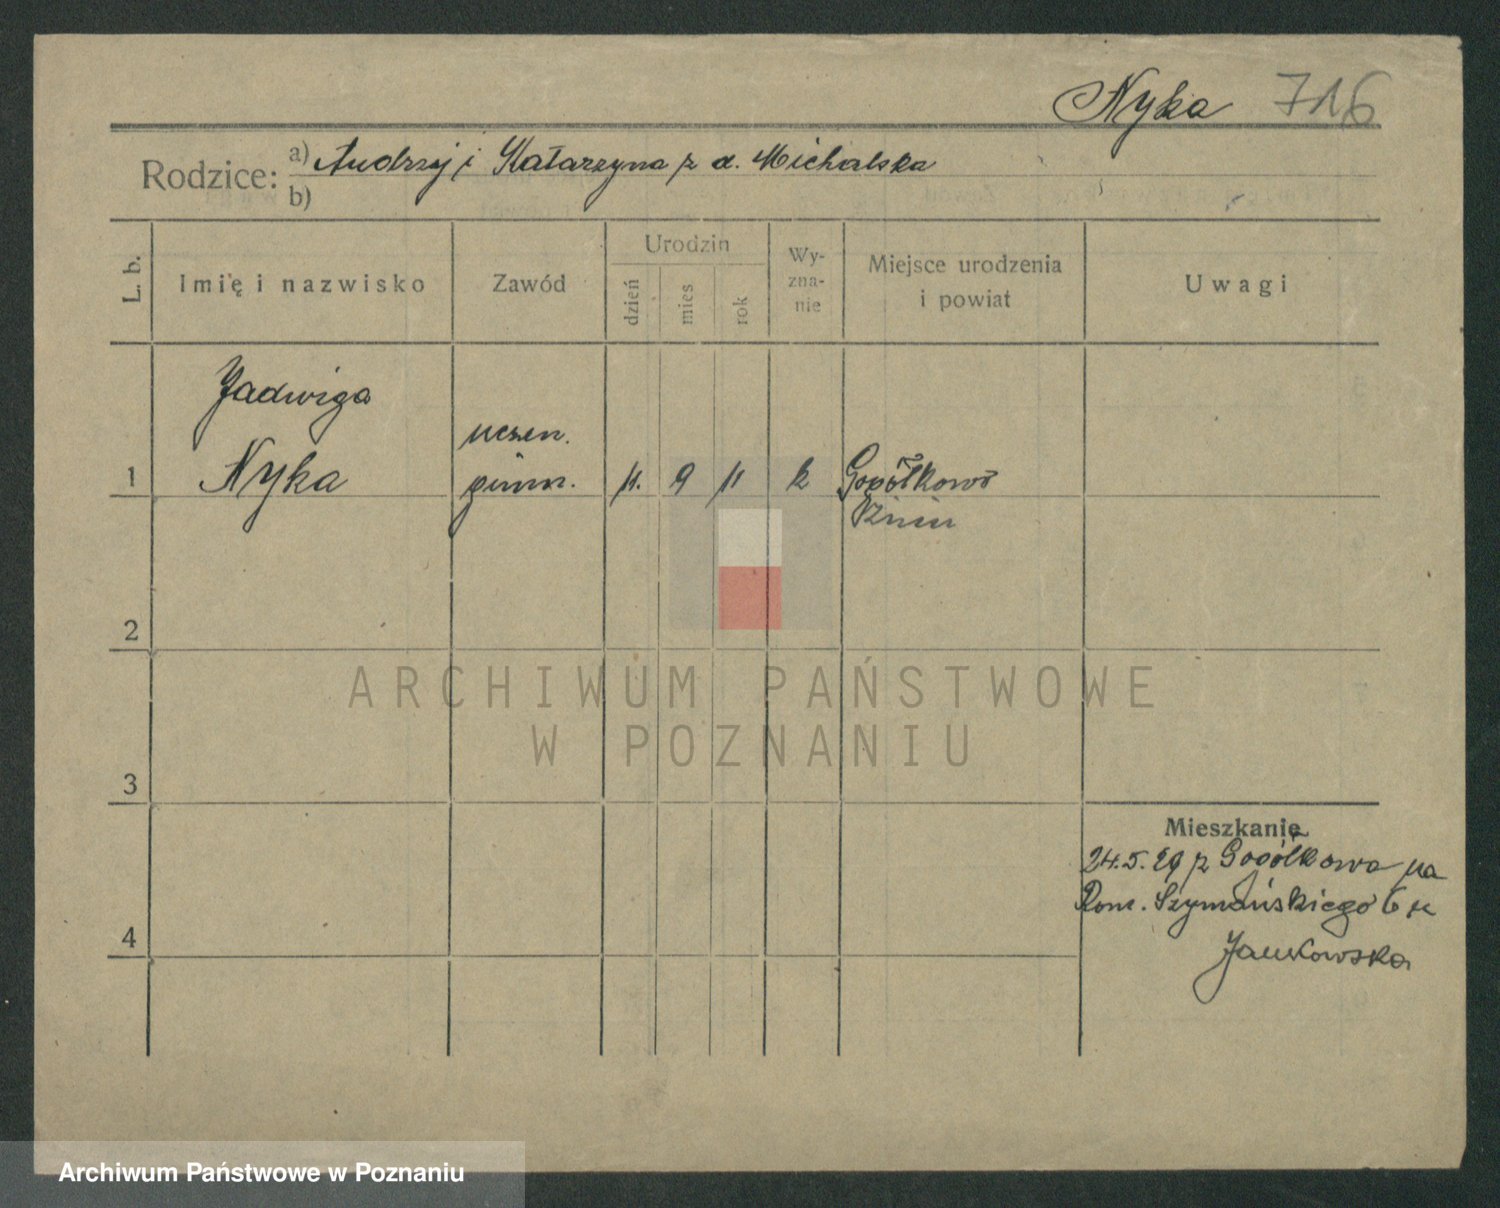 Nyka 716
Rodzice: a) Andrzej i Katarzyna z d. Michalska
b)
L. b.
Imię i nazwisko
Zawód
Urodzin
dzień
mies
rok
Wy-
zna-
nie
Miejsce urodzenia
i powiat
Uwagi
Jadwiga
uczen.
1 Nyka gimn. 11. 9 11 k Gogółkowo
Żnin
2
3
4
Mieszkanie
24.5.29 z Gogółkowa na
Rom. Szymańskiego 6 u
Jankowska
ARCHIWUM PAŃSTWOWE
W POZNANIU
Archiwum Państwowe w Poznaniu